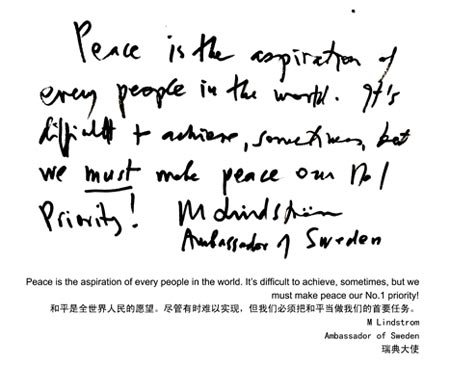 Peace is the aspiration of
every people in the world. It's
difficult to achieve, sometimes, but
we must make peace our No 1
Priority! M Lindström
Ambassador of Sweden
Peace is the aspiration of every people in the world. It's difficult to achieve, sometimes, but we
must make peace our No.1 priority!
和平是全世界人民的愿望。尽管有时难以实现，但我们必须把和平当做我们的首要任务。
M Lindstrom
Ambassador of Sweden
瑞典大使